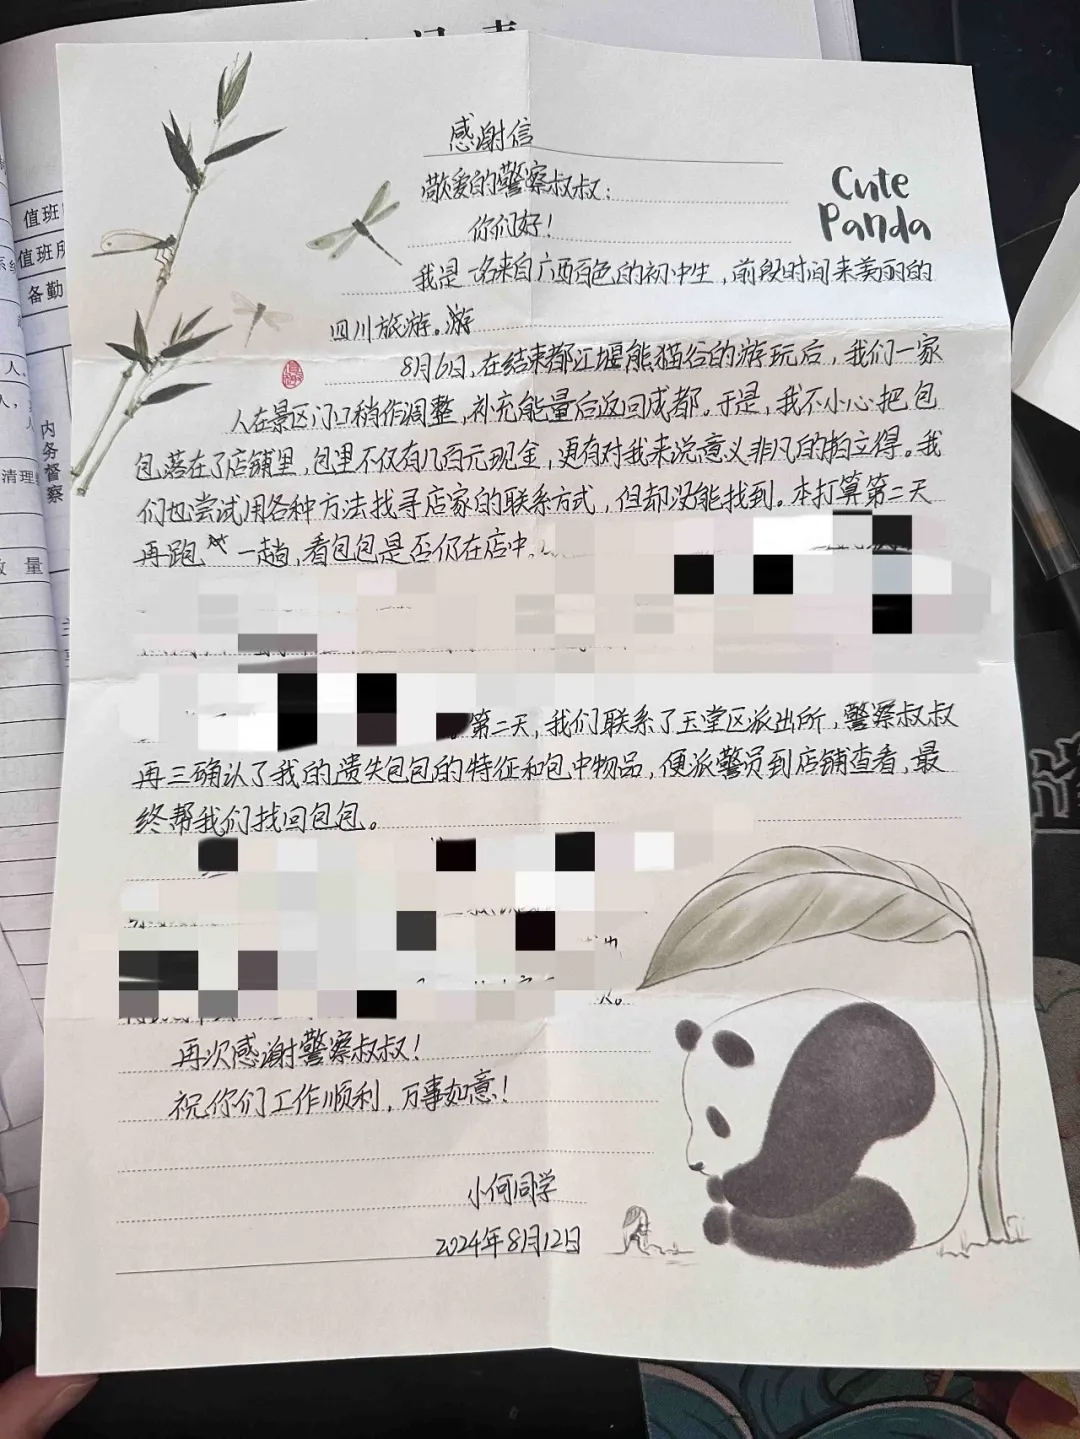 感谢信
敬爱的警察叔叔：
你们好！
Cute
Panda
我是一名来自广西百色的初中生，前段时间来美丽的
四川旅游。游
8月6日，在结束都江堰熊猫谷的游玩后，我们一家
人在景区门口稍作调整，补充能量后返回成都。于是，我不小心把包
包落在了店铺里，包里不仅有几百元现金，更有对我来说意义非凡的拍立得。我
们也尝试用各种方法找寻店家的联系方式，但却没能找到。本打算第二天
再跑一趟，看包包是否仍在店中。
第二天，我们联系了玉堂区派出所，警察叔叔
再三确认了我的遗失包包的特征和包中物品，便派警员到店铺查看，最
终帮我们找回包包。
再次感谢警察叔叔！
祝你们工作顺利，万事如意！
小何同学
2024年8月12日
值班
值班
备勤
内务督察
清理
量